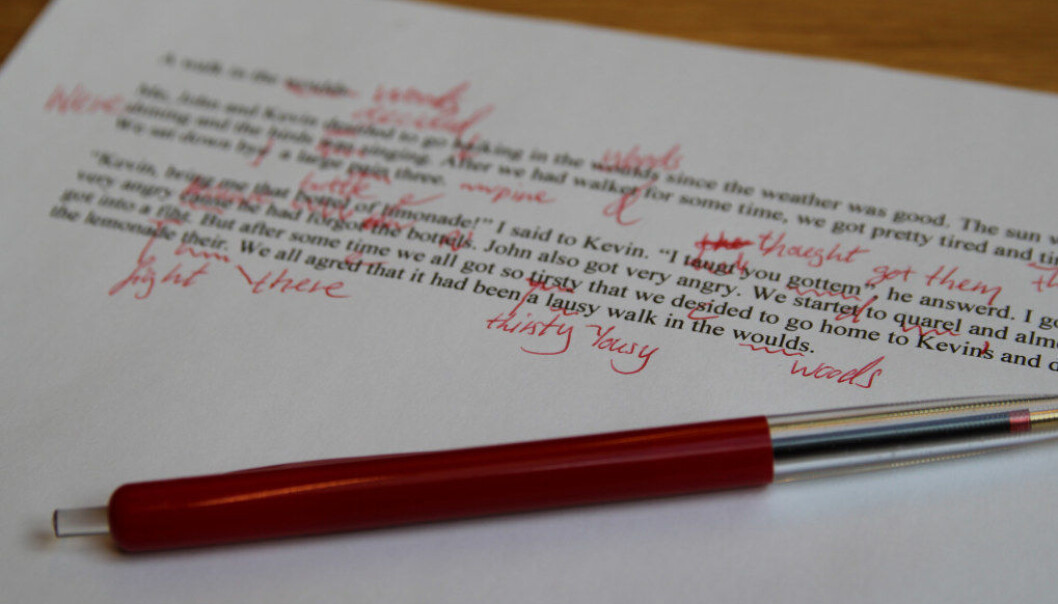 A walk in the woulds woods
Me, John and Kevin decided to go hiking in the woulds since the weather was good. The sun w
decided woods
Were
shining and the birds was singing. After we had walket for some time, we got pretty tired and
d
We sat down by a large three.
"Kevin, bring me that bottel of limonade!" I said to Kevin. "I taugt you gottem" he answerd. I go
bottle thought got them
very angry he had forgot the bottels. John also got very angry. We startet to quarel and almo
d
got into a fiht. But after some time we all got so tirsty that we desided to go home to Kevins and d
fight c
the lemonade their. We all agreed that it had been a lausy walk in the woulds.
there thirsty lousy woods